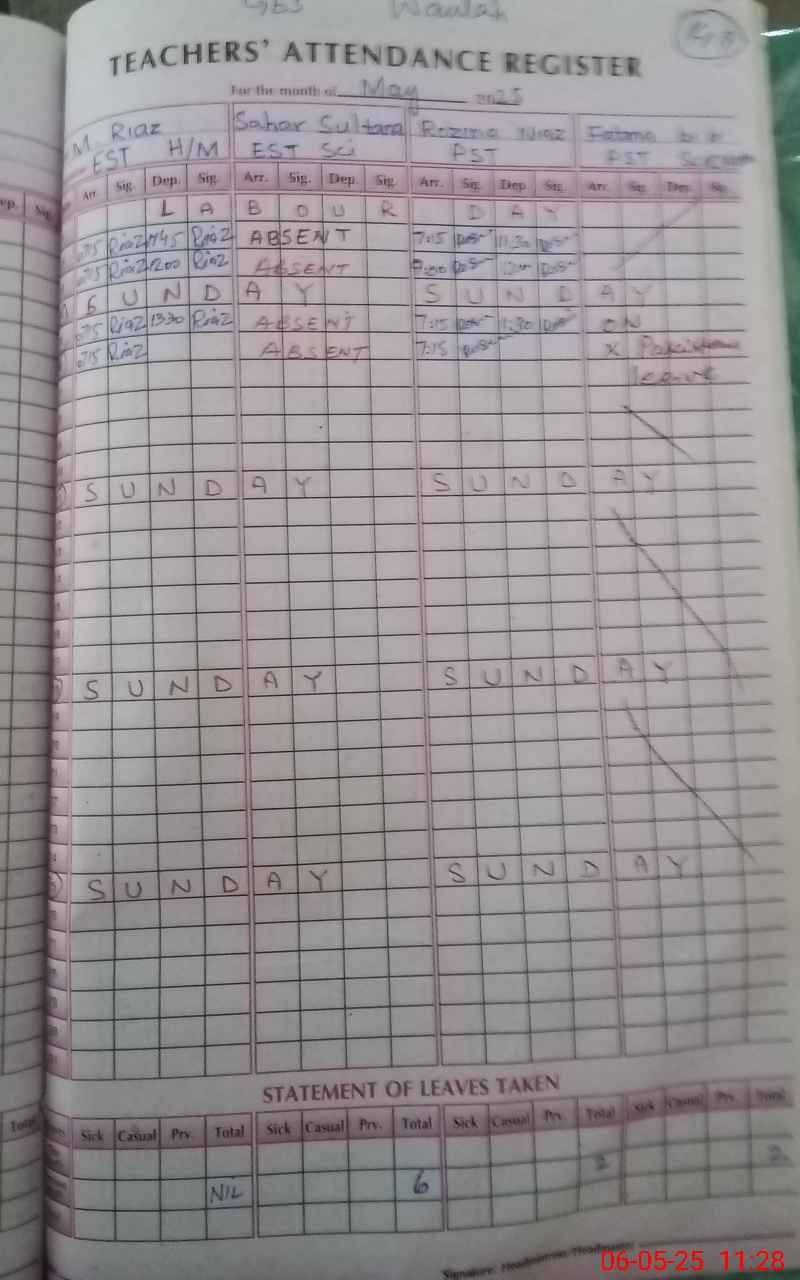 TEACHERS' ATTENDANCE REGISTER
For the month of May 2025
M. Riaz Sahar Sultana Rozina Niaz Fatima bibi
EST H/M EST Sci PST PST
Arr. Sig. Dep. Sig. Arr. Sig. Dep. Sig. Arr. Sig. Dep. Sig. Arr. Sig. Dep. Sig.
L A B O U R D A Y
Riaz Riaz ABSENT 7:15 11:30
Riaz 1200 Riaz ABSENT
S U N D A Y S U N D A Y
Riaz 1330 Riaz ABSENT 7:15 11:30 ON
Riaz ABSENT 7:15 x
leave
S U N D A Y S U N D A Y
S U N D A Y S U N D A Y
S U N D A Y S U N D A Y
STATEMENT OF LEAVES TAKEN
Sick Casual Prv. Total Sick Casual Prv. Total Sick Casual Prv. Total Sick Casual Prv. Total
2 2
NIL 6
Signature: Headmistress/Headmaster
06-05-25 11:28